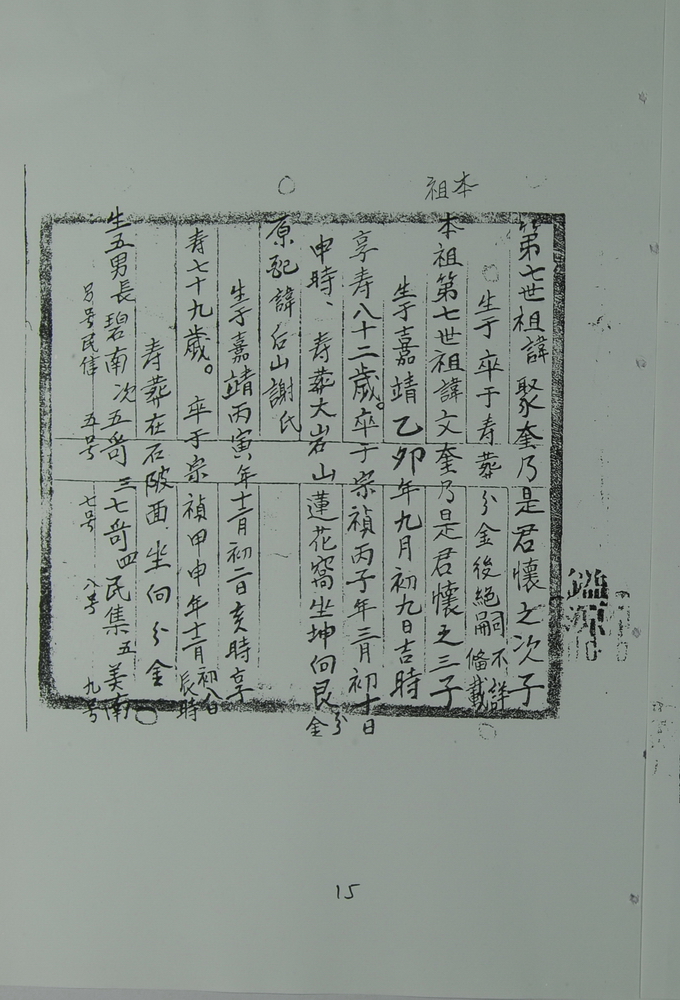 本祖
第七世祖諱 聚奎乃是君懷之次子
生于 卒于寿葬 分金後絕嗣不詳偹載
本祖第七世祖諱文奎乃是君懷之三子
生于嘉靖乙卯年九月初九日吉時
享寿八十二歲。卒于宗禎丙子年三月初十日
申時、寿葬大岩山蓮花窩坐坤向艮分金
原配諱后山謝氏
生于嘉靖丙寅年十二月初二日亥時享
寿七十九歲。卒于宗禎甲申年十二月初八日辰時
寿葬在石陂面坐向分金
生五男長碧南次五哥三七哥四民集五美南
另号民偉 五号 七号 八号 九号
15